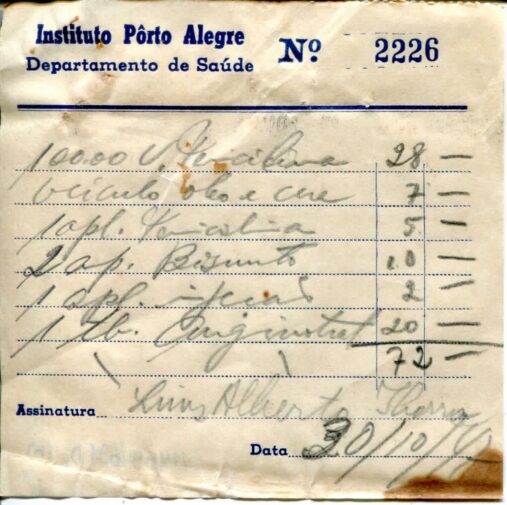 Instituto Pôrto Alegre
Departamento de Saúde
Nº 2226
100.000 U. Penicilina 28 —
veículo oleo e cera 7 —
1 apl. Penicilina 5 —
2 ap. Bismuto 10 —
1 apl. 2 —
1 tb. 20 —
72 —
Assinatura Luiz Alberto
Data 30/10/